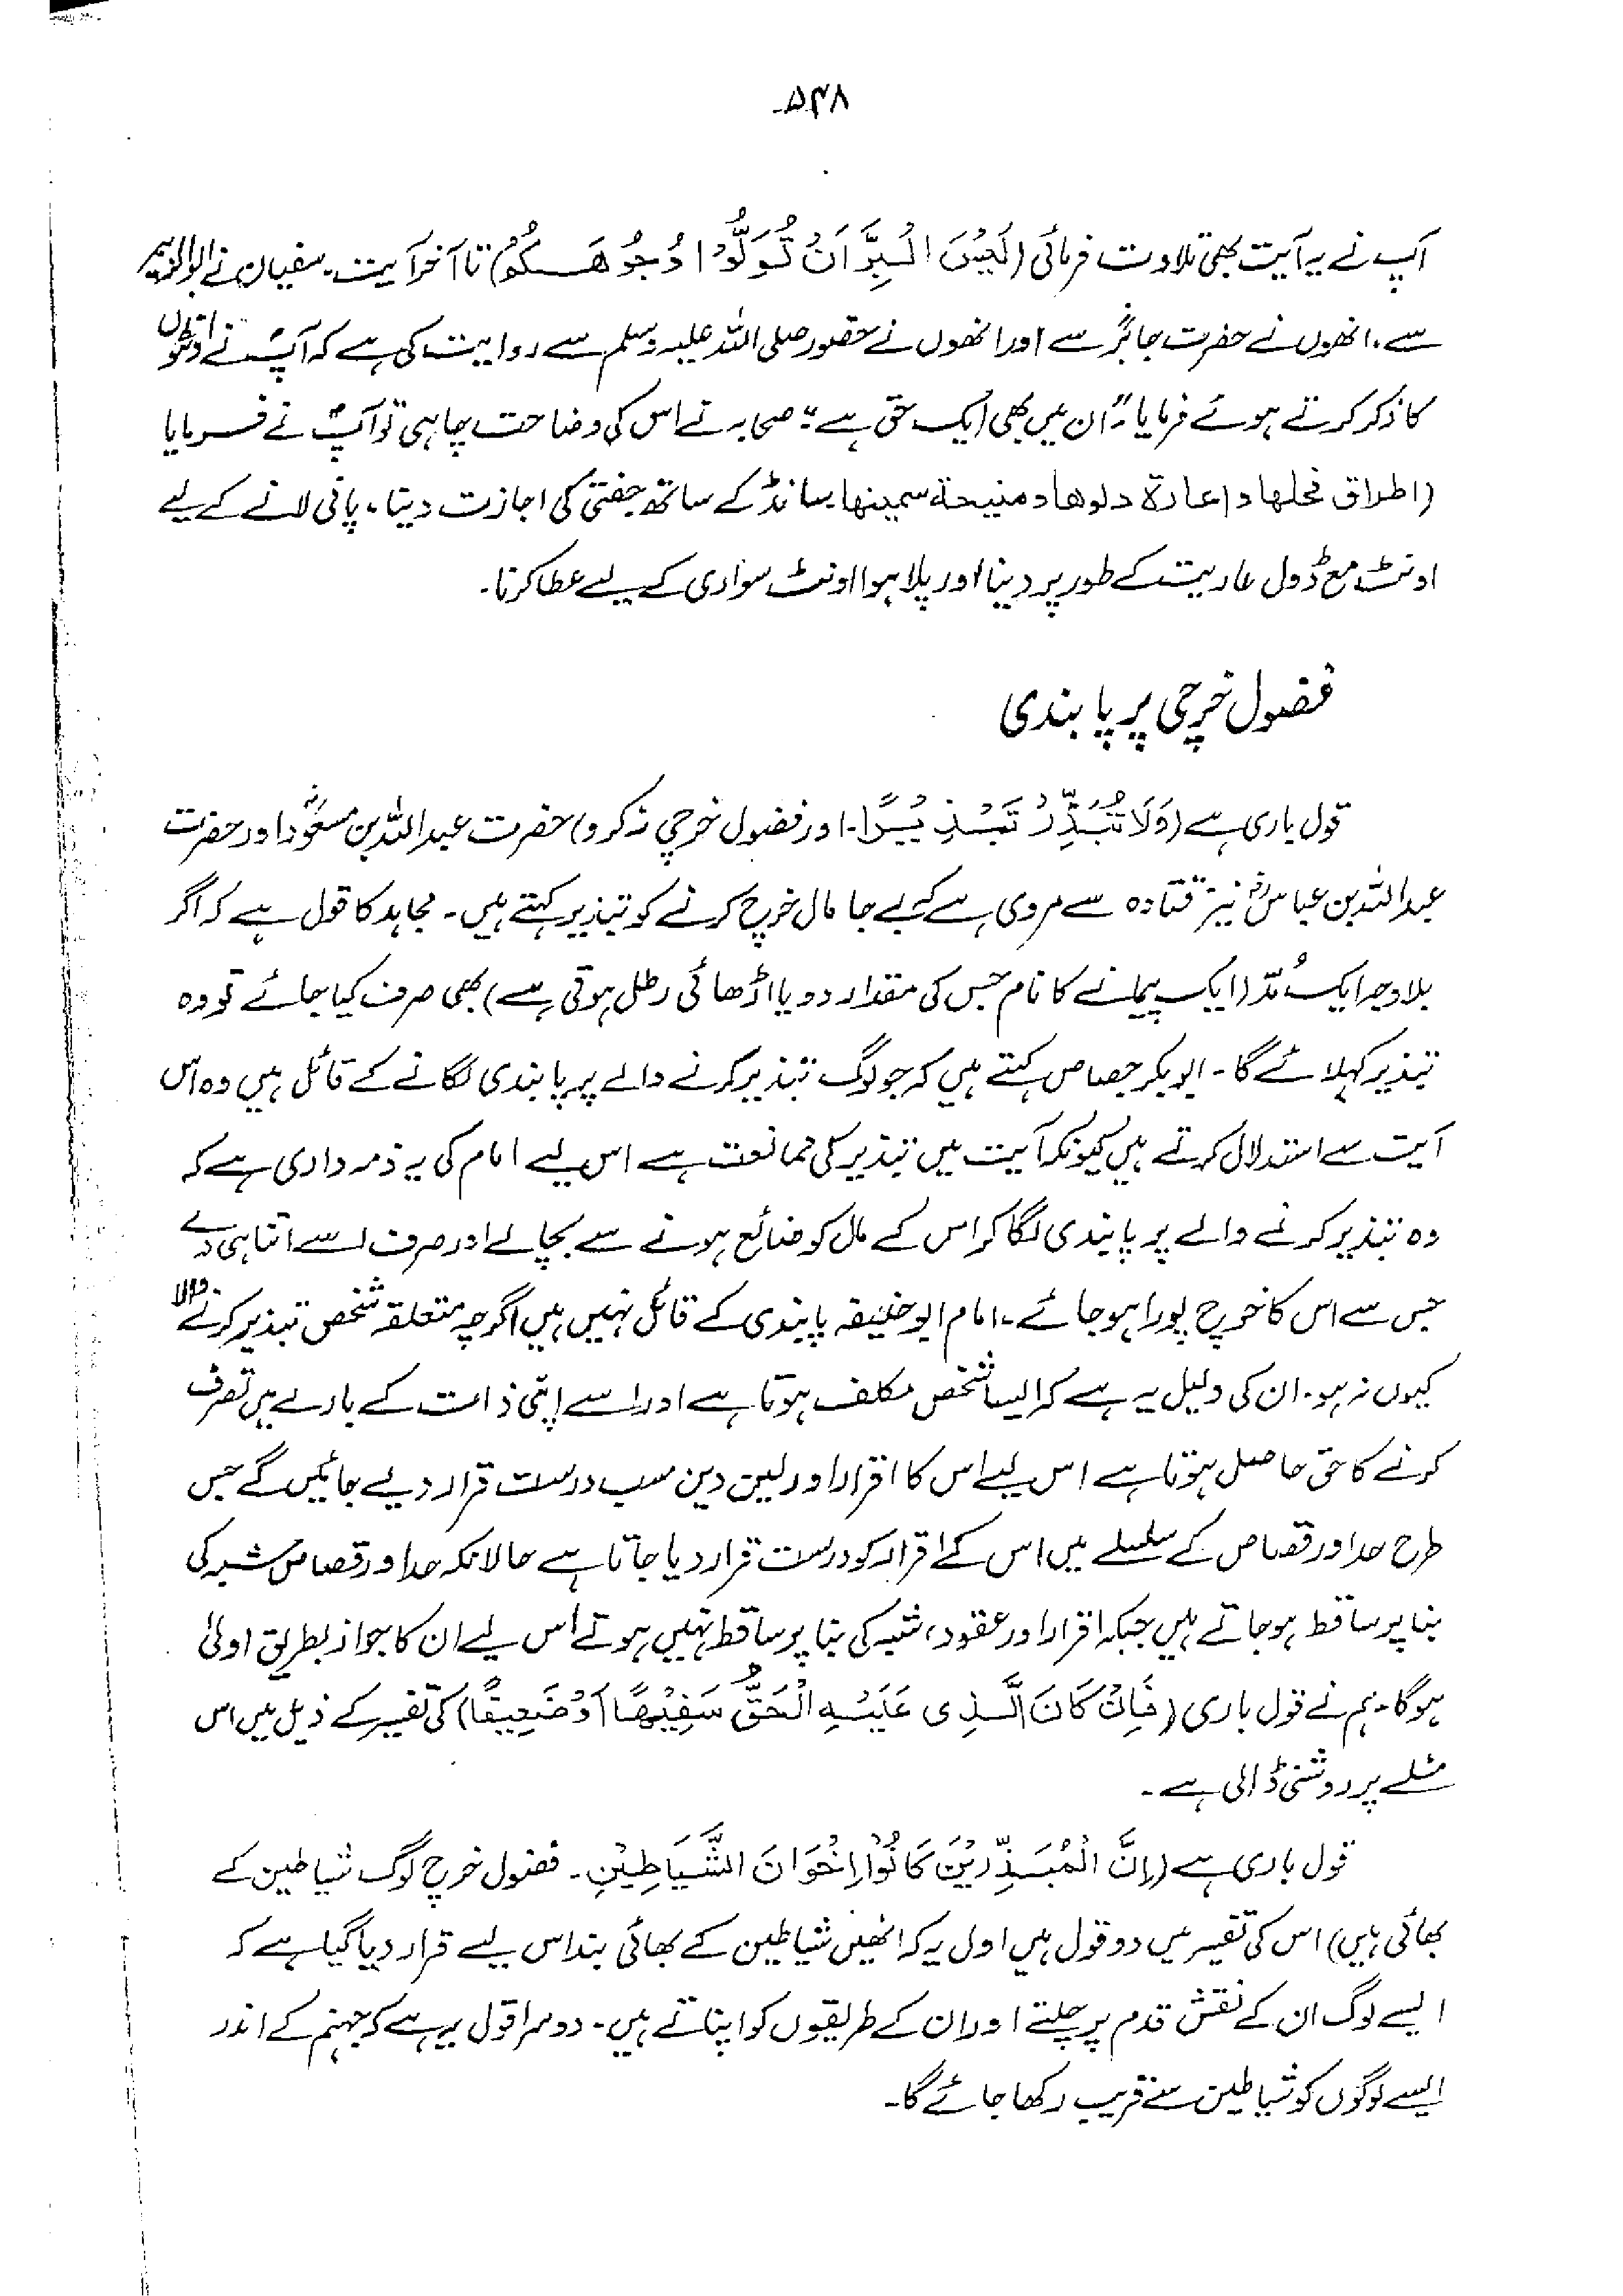 ۵۴۸
آپ نے یہ آیت بھی تلاوت فرمائی (لَيْسَ الْبِرَّ اَنْ تُوَلُّوْا وُجُوْهَكُمْ) تا آخر آیت۔ سفیان نے ابوالزبیر
سے، انھوں نے حضرت جابرؓ سے اور انھوں نے حضور صلی اللہ علیہ وسلم سے روایت کی ہے کہ آپؐ نے اونٹوں
کا ذکر کرتے ہوئے فرمایا۔ "ان میں بھی ایک حق ہے" صحابہ نے اس کی وضاحت چاہی تو آپؐ نے فرمایا
(اطراق فحلها واعارة دلوها ومنيحة سمينها۔ سانڈ کے ساتھ جفتی کی اجازت دینا، پانی لانے کے لیے
اونٹ مع ڈول عاریت کے طور پر دینا اور پلا ہوا اونٹ سواری کے لیے عطا کرنا۔
فضول خرچی پر پابندی
قول باری ہے (وَلَا تُبَذِّرْ تَبْذِيْرًا۔ اور فضول خرچی نہ کرو) حضرت عبداللہ بن مسعودؓ اور حضرت
عبداللہ بن عباسؓ نیز قتادہ سے مروی ہے کہ بے جا مال خرچ کرنے کو تبذیر کہتے ہیں۔ مجاہد کا قول ہے کہ اگر
بلاوجہ ایک مُدّ (ایک پیمانے کا نام جس کی مقدار دو یا اڑھائی رطل ہوتی ہے) بھی صرف کیا جائے تو وہ
تبذیر کہلائے گا۔ ابوبکر جصاص کہتے ہیں کہ جو لوگ تبذیر کرنے والے پر پابندی لگانے کے قائل ہیں وہ اس
آیت سے استدلال کرتے ہیں کیونکہ آیت میں تبذیر کی ممانعت ہے اس لیے امام کی یہ ذمہ داری ہے کہ
وہ تبذیر کرنے والے پر پابندی لگا کر اس کے مال کو ضائع ہونے سے بچالے اور صرف اسے اتنا ہی دے
جس سے اس کا خرچ پورا ہو جائے۔ امام ابوحنیفہ پابندی کے قائل نہیں ہیں اگرچہ متعلقہ شخص تبذیر کرنے والا
کیوں نہ ہو۔ ان کی دلیل یہ ہے کہ ایسا شخص مکلف ہوتا ہے اور اسے اپنی ذات کے بارے میں تصرف
کرنے کا حق حاصل ہوتا ہے اس لیے اس کا اقرار اور لین دین سب درست قرار دیے جائیں گے جس
طرح حد اور قصاص کے سلسلے میں اس کے اقرار کو درست قرار دیا جاتا ہے حالانکہ حد اور قصاص شبہ کی
بنا پر ساقط ہو جاتے ہیں جبکہ اقرار اور عقود، شبہ کی بنا پر ساقط نہیں ہوتے اس لیے ان کا جواز بطریق اولیٰ
ہوگا۔ ہم نے قول باری (فَاِنْ كَانَ الَّذِى عَلَيْهِ الْحَقُّ سَفِيْهًا اَوْ ضَعِيفًا) کی تفسیر کے ذیل میں اس
مئلے پر روشنی ڈالی ہے۔
قول باری ہے (اِنَّ الْمُبَذِّرِيْنَ كَانُوْا اِخْوَانَ الشَّيَاطِيْنِ۔ فضول خرچ لوگ شیاطین کے
بھائی ہیں) اس کی تفسیر میں دو قول ہیں اول یہ کہ انھیں شیاطین کے بھائی بند اس لیے قرار دیا گیا ہے کہ
ایسے لوگ ان کے نقش قدم پر چلتے اور ان کے طریقوں کو اپناتے ہیں۔ دوسرا قول یہ ہے کہ جہنم کے اندر
ایسے لوگوں کو شیاطین سے قریب رکھا جائے گا۔